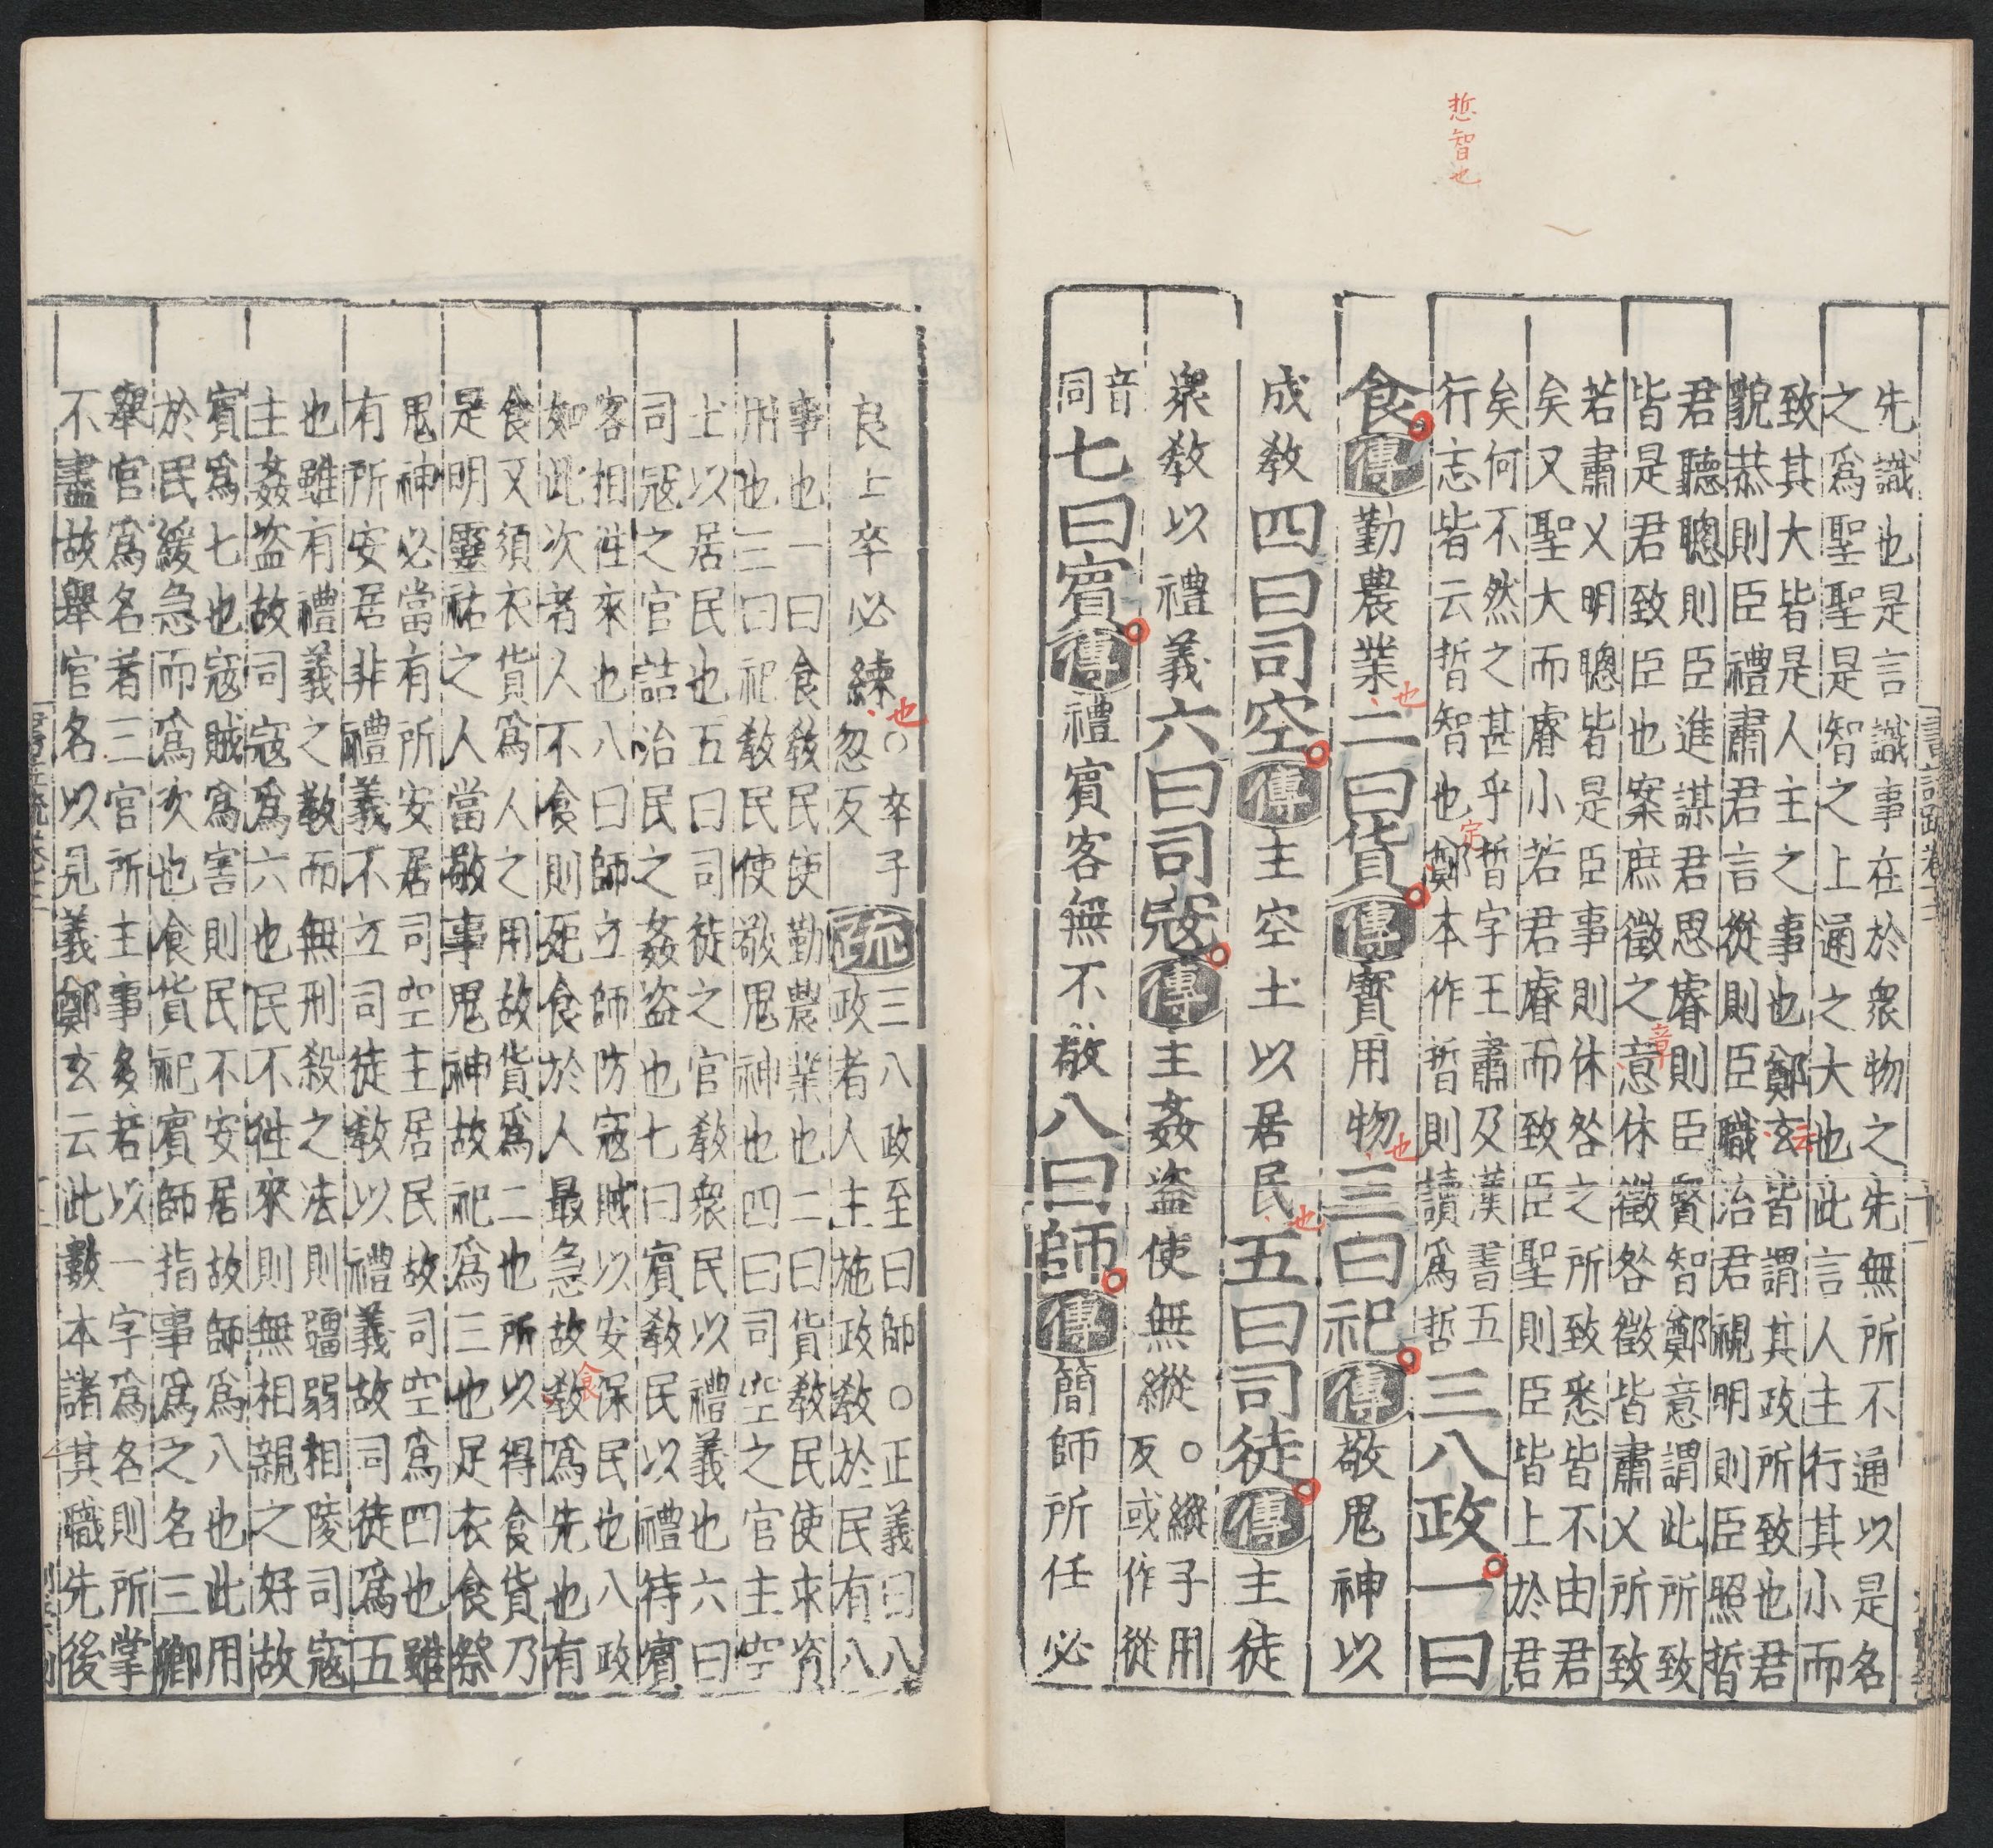 悊智也
書註疏卷十二
先識也是言識事在於衆物之先無所不通以是名
之爲聖聖是智之上通之大也此言人主行其小而
致其大皆是人主之事也鄭玄云皆謂其政所致也君
貌恭則臣禮肅君言從則臣職治君視明則臣照晢
君聽聰則臣進謀君思睿則臣賢智鄭意謂此所致
皆是君致臣也案庶徵之章意休徵咎徵皆肅乂所致
若肅乂明聰皆是臣事則休咎之所致悉皆不由君
矣又聖大而睿小若君睿而致臣聖則臣皆上於君
矣何不然之甚乎晢字王肅及漢書五
行志皆云晢智也定鄭本作晢則讀爲哲
三八政一曰
食傳勤農業也二曰貨傳寳用物也三曰祀傳敬鬼神以
成教四曰司空傳主空土以居民也五曰司徒傳主徒
衆教以禮義六曰司寇傳主姦盜使無縱○縱子用
反或作從
音
同
七曰賓傳禮賓客無不敬八曰師傳簡師所任必
良士卒必練也○卒子
忽反
疏三八政至曰師○正義曰八
政者人主施政教於民有八
事也一曰食教民使勤農業也二曰貨教民使求資
用也三曰祀教民使敬鬼神也四曰司空之官主空
土以居民也五曰司徒之官教衆民以禮義也六曰
司寇之官詰治民之姦盜也七曰賓教民以禮待賓
客相徃來也八曰師立師防寇賊以安保民也八政
如此次者人不食則死食於人最急故教食爲先也有
食又須衣貨爲人之用故貨爲二也所以得食貨乃
是明靈祐之人當敬事鬼神故祀爲三也足衣食祭
鬼神必當有所安居司空主居民故司空爲四也雖
有所安居非禮義不立司徒教以禮義故司徒爲五
也雖有禮義之敎而無刑殺之法則彊弱相陵司寇
主姦盜故司寇爲六也民不徃來則無相親之好故
賓爲七也寇賊爲害則民不安居故師爲八也此用
於民緩急而爲次也食貨祀賓師指事爲之名三卿
舉官爲名者三官所主事多若以一字爲名則所掌
不盡故舉官名以見義鄭玄云此數本諸其職先後